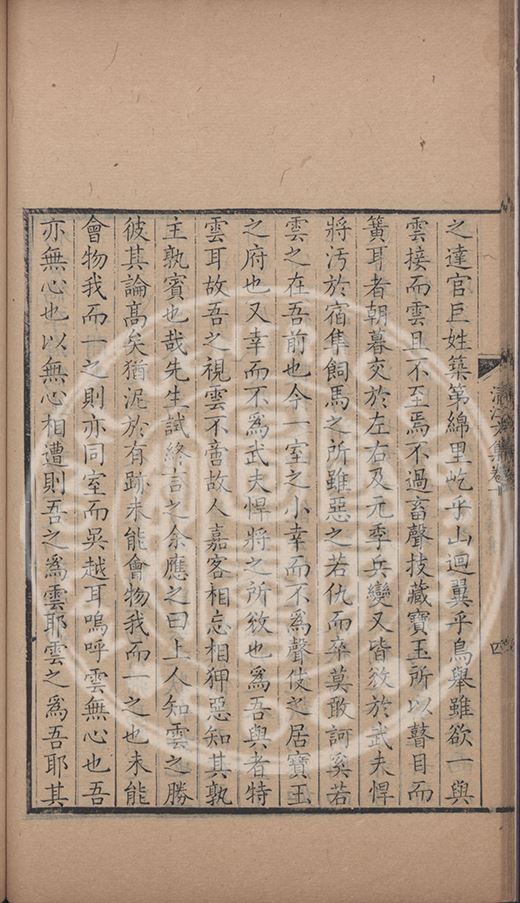 之達官巨姓築第綿里屹乎山迴翼乎鳥舉雖欲一與
雲接而雲且不至焉不過畜聲技藏寶玉所以瞽目而
簧耳者朝暮交於左右及元季兵變又皆攷於武夫悍
將汚於宿隼飼馬之所雖惡之若仇而卒莫敢訶奚若
雲之在吾前也今一室之小幸而不爲聲伎之居寶玉
之府也又幸而不爲武夫悍將之所攷也爲吾與者特
雲耳故吾之視雲不啻故人嘉客相忘相狎惡知其孰
主孰賓也哉先生試終言之余應之曰上人知雲之勝
彼其論高矣猶泥於有跡未能會物我而一之也未能
會物我而一之則亦同室而吳越耳嗚呼雲無心也吾
亦無心也以無心相遭則吾之爲雲耶雲之爲吾耶其
清江文集卷
四